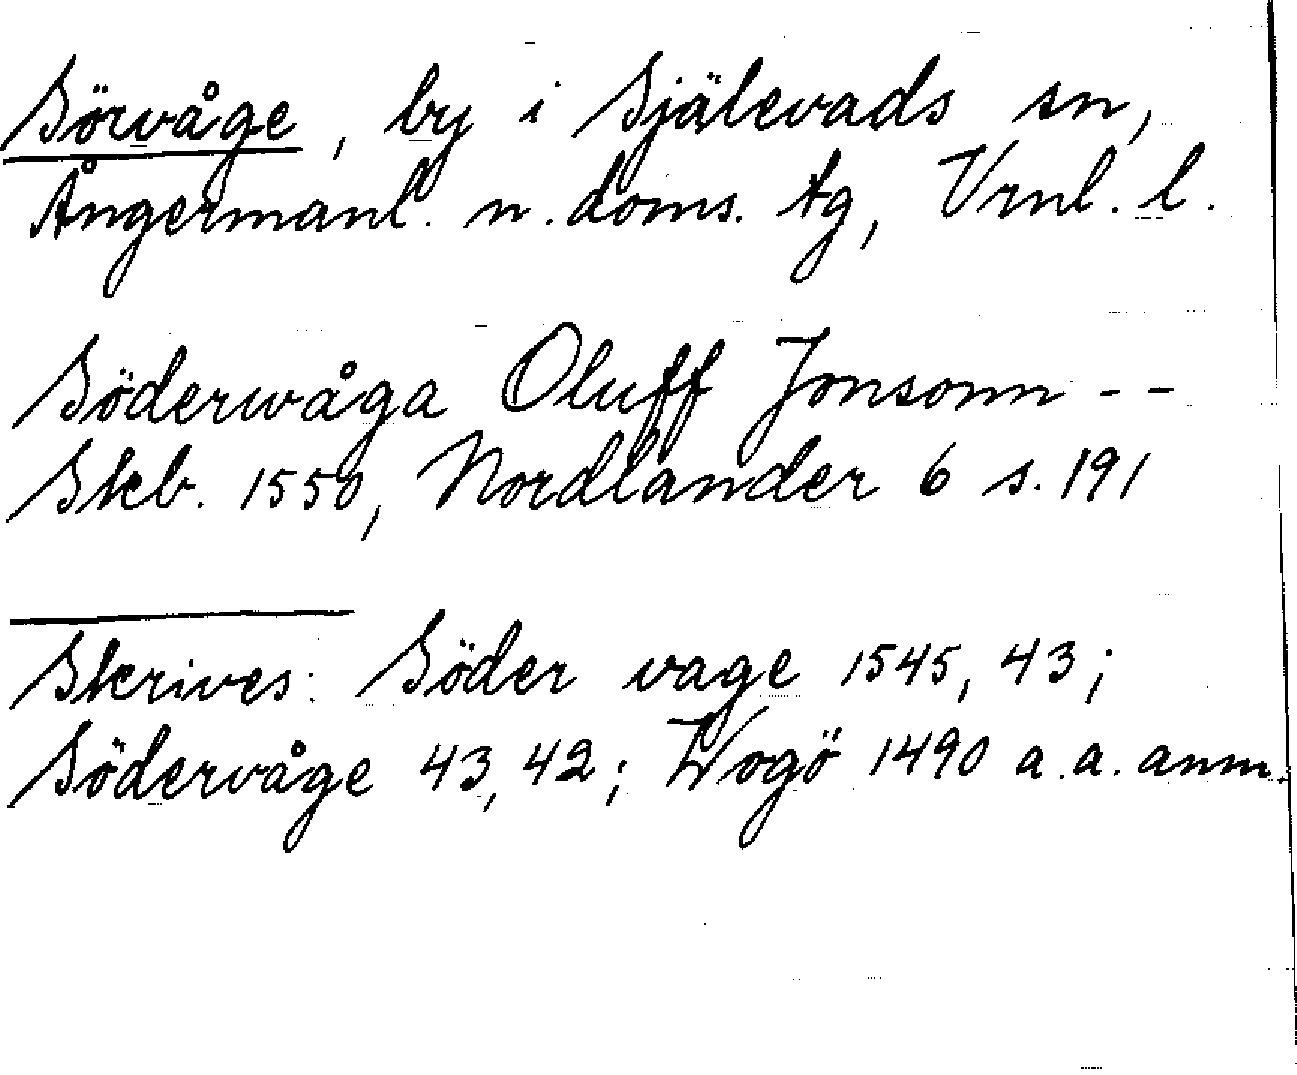 Sörvåge, by i Själevads sn,
Ångermanl. n. doms. tg, Vrnl. l.
Söderwåga Oluff Jonsonn - -
Skb. 1550, Nordlander 6 s. 191
Skrives: Söder vage 1545, 43;
Södervåge 43, 42; Wogö 1490 a. a. anm.